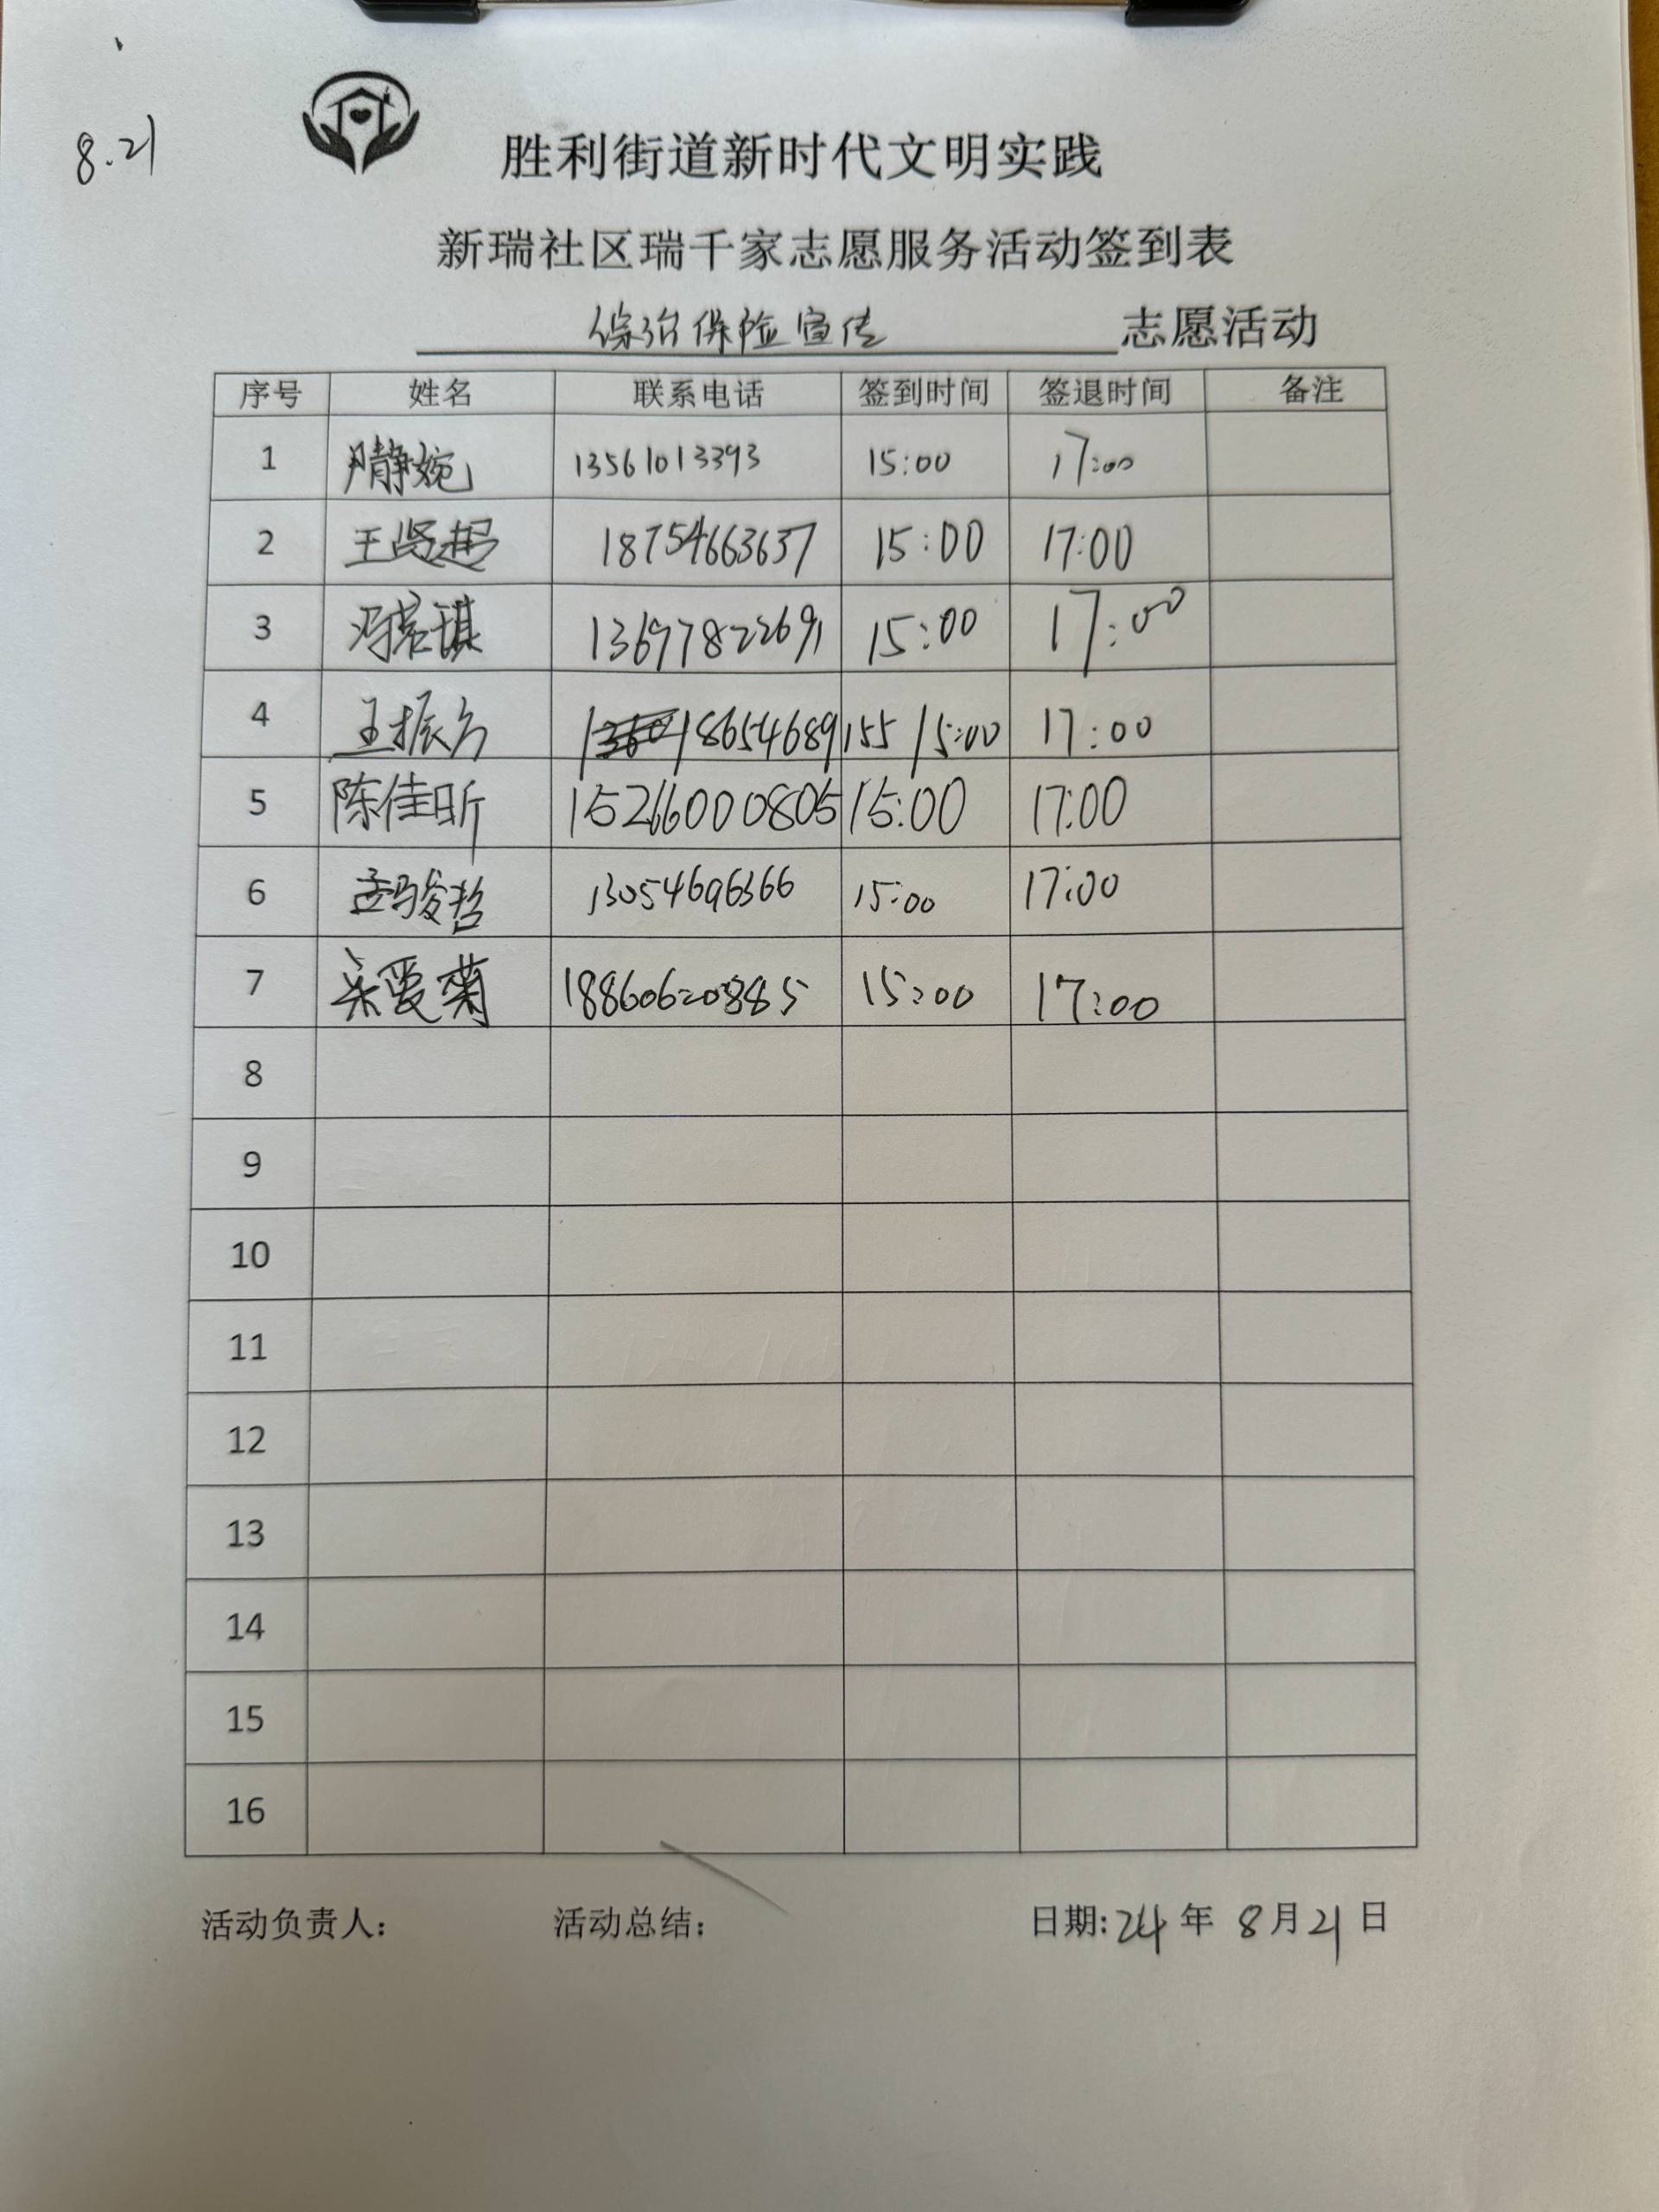 8.21
胜利街道新时代文明实践
新瑞社区瑞千家志愿服务活动签到表
综治保险宣传 志愿活动
序号 姓名 联系电话 签到时间 签退时间 备注
1 隋静婉 13561013393 15:00 17:00
2 王贤超 18754663637 15:00 17:00
3 冯宏琪 13697822691 15:00 17:00
4 王振方 18654689155 15:00 17:00
5 陈佳昕 15266000805 15:00 17:00
6 孟骏哲 13054696366 15:00 17:00
7 宋爱菊 18860620885 15:00 17:00
8
9
10
11
12
13
14
15
16
活动负责人: 活动总结: 日期:24年 8月21日